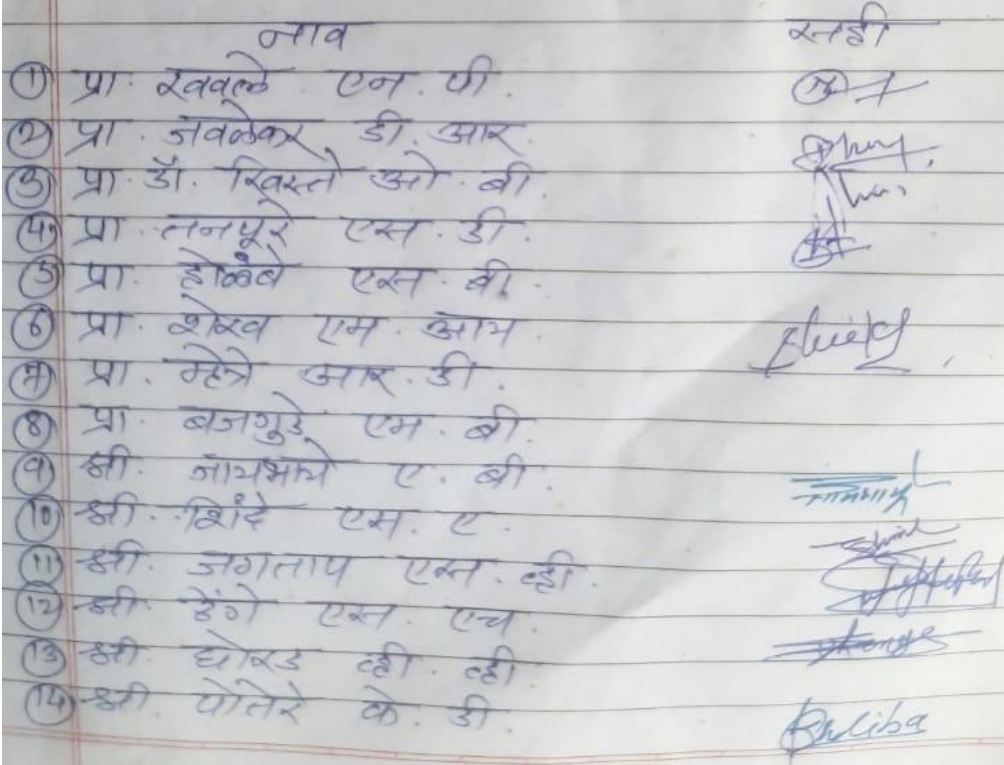 नाव सही
① प्रा. खवले एन. पी.
② प्रा. जवळेकर डी. आर.
③ प्रा. डॉ. खिस्ते ओ. बी.
④ प्रा. तनपूरे एस. डी.
⑤ प्रा. होळंबे एस. बी.
⑥ प्रा. शेख एम. आय. Shiekh
⑦ प्रा. म्हेत्रे आर. डी.
⑧ प्रा. बजगुडे एम. बी.
⑨ श्री. जायभाये ए. बी.
⑩ श्री. शिंदे एम. ए.
⑪ श्री. जगताप एस. व्ही.
⑫ श्री. डेंगे एस. एच.
⑬ श्री. घोरड व्ही. व्ही.
⑭ श्री. पोतेरे के. डी.